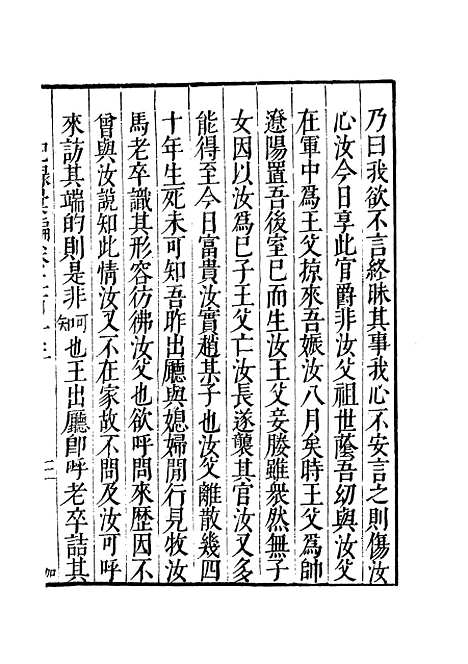 乃曰我欲不言終昧其事我心不安言之則傷汝
心汝今日享此官爵非汝父祖世廕吾幼與汝父
在軍中爲王父掠來吾娠汝八月矣時王父爲帥
遼陽置吾後室已而生汝王父妾媵雖衆然無子
女因以汝爲已子王父亡汝長遂襲其官汝又多
能得至今日富貴汝實趙某子也汝父離散幾四
十年生死未可知吾昨出廳與媳婦閒行見牧汝
馬老卒識其形容彷彿汝父也欲呼問來歷因不
曾與汝說知此情汝又不在家故不問及汝可呼
來訪其端的則是非可知也王出廳卽呼老卒詰其
紀錄彙編卷二百十三
三